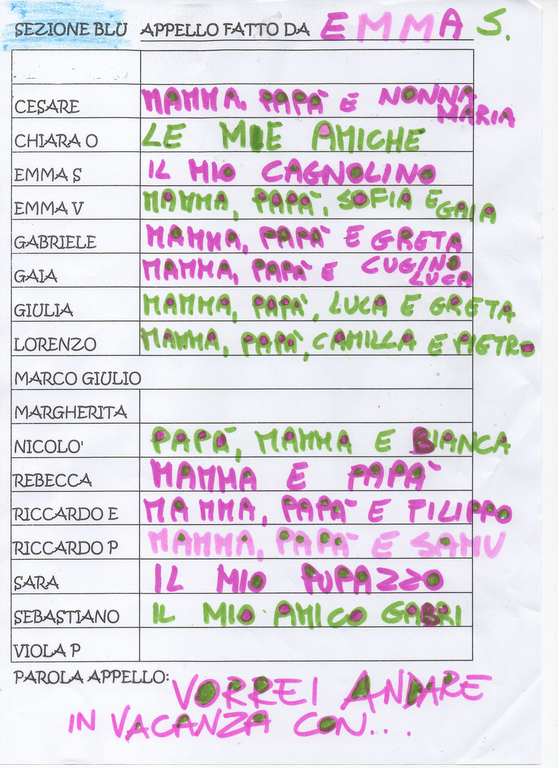 SEZIONE BLU APPELLO FATTO DA EMMA S.
CESARE MAMMA, PAPÀ E NONNA MARIA
CHIARA O LE MIE AMICHE
EMMA S IL MIO CAGNOLINO
EMMA V MAMMA, PAPÀ, SOFIA E GAIA
GABRIELE MAMMA, PAPÀ E GRETA
GAIA MAMMA, PAPÀ E CUGINO LUCA
GIULIA MAMMA, PAPÀ, LUCA E GRETA
LORENZO MAMMA, PAPÀ, CAMILLA E PIETRO
MARCO GIULIO
MARGHERITA
NICOLO' PAPÀ, MAMMA E BIANCA
REBECCA MAMMA E PAPÀ
RICCARDO E MAMMA, PAPÀ E FILIPPO
RICCARDO P MAMMA, PAPÀ E SAMU
SARA IL MIO PUPAZZO
SEBASTIANO IL MIO AMICO GABRI
VIOLA P
PAROLA APPELLO: VORREI ANDARE
IN VACANZA CON...